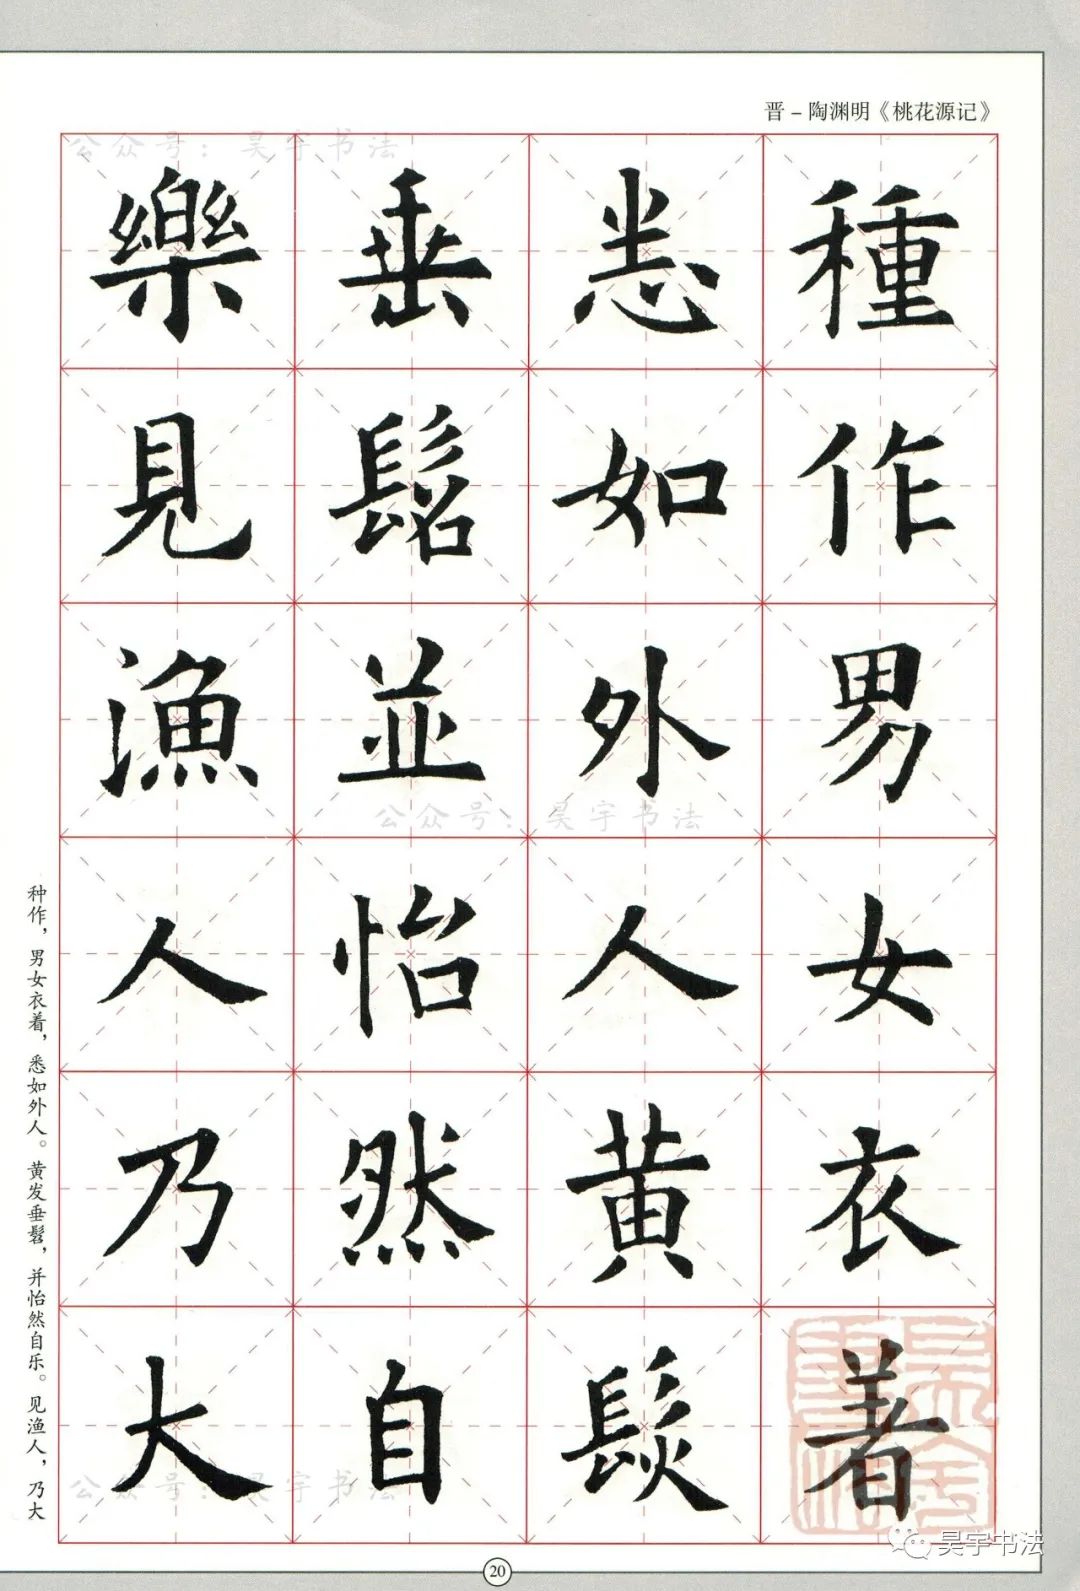 晋－陶渊明《桃花源记》
種作男女衣著
悉如外人黄髮
垂髫並怡然自
樂見漁人乃大
种作，男女衣着，悉如外人。黄发垂髫，并怡然自乐。见渔人，乃大
公众号：昊宇书法
公众号：昊宇书法
公众号：昊宇书法
昊宇书法
20